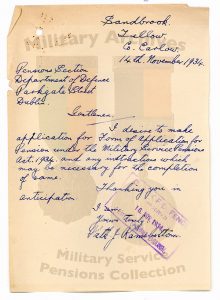 Sandbrook,
Tullow,
Co. Carlow,
14th November 1934.
Military Archives
Pensions Section
Department of Defence
Parkgate Street
Dublin
Gentlemen
I desire to make
application for Form of Application for
Pension under the Military Service Pensions
Act. 1934. and any instructions which
may be necessary for the completion
of same.
Thanking you in
anticipation
I am
Yours truly
Patk J. Ramsbottom
Military Service
Pensions Collection